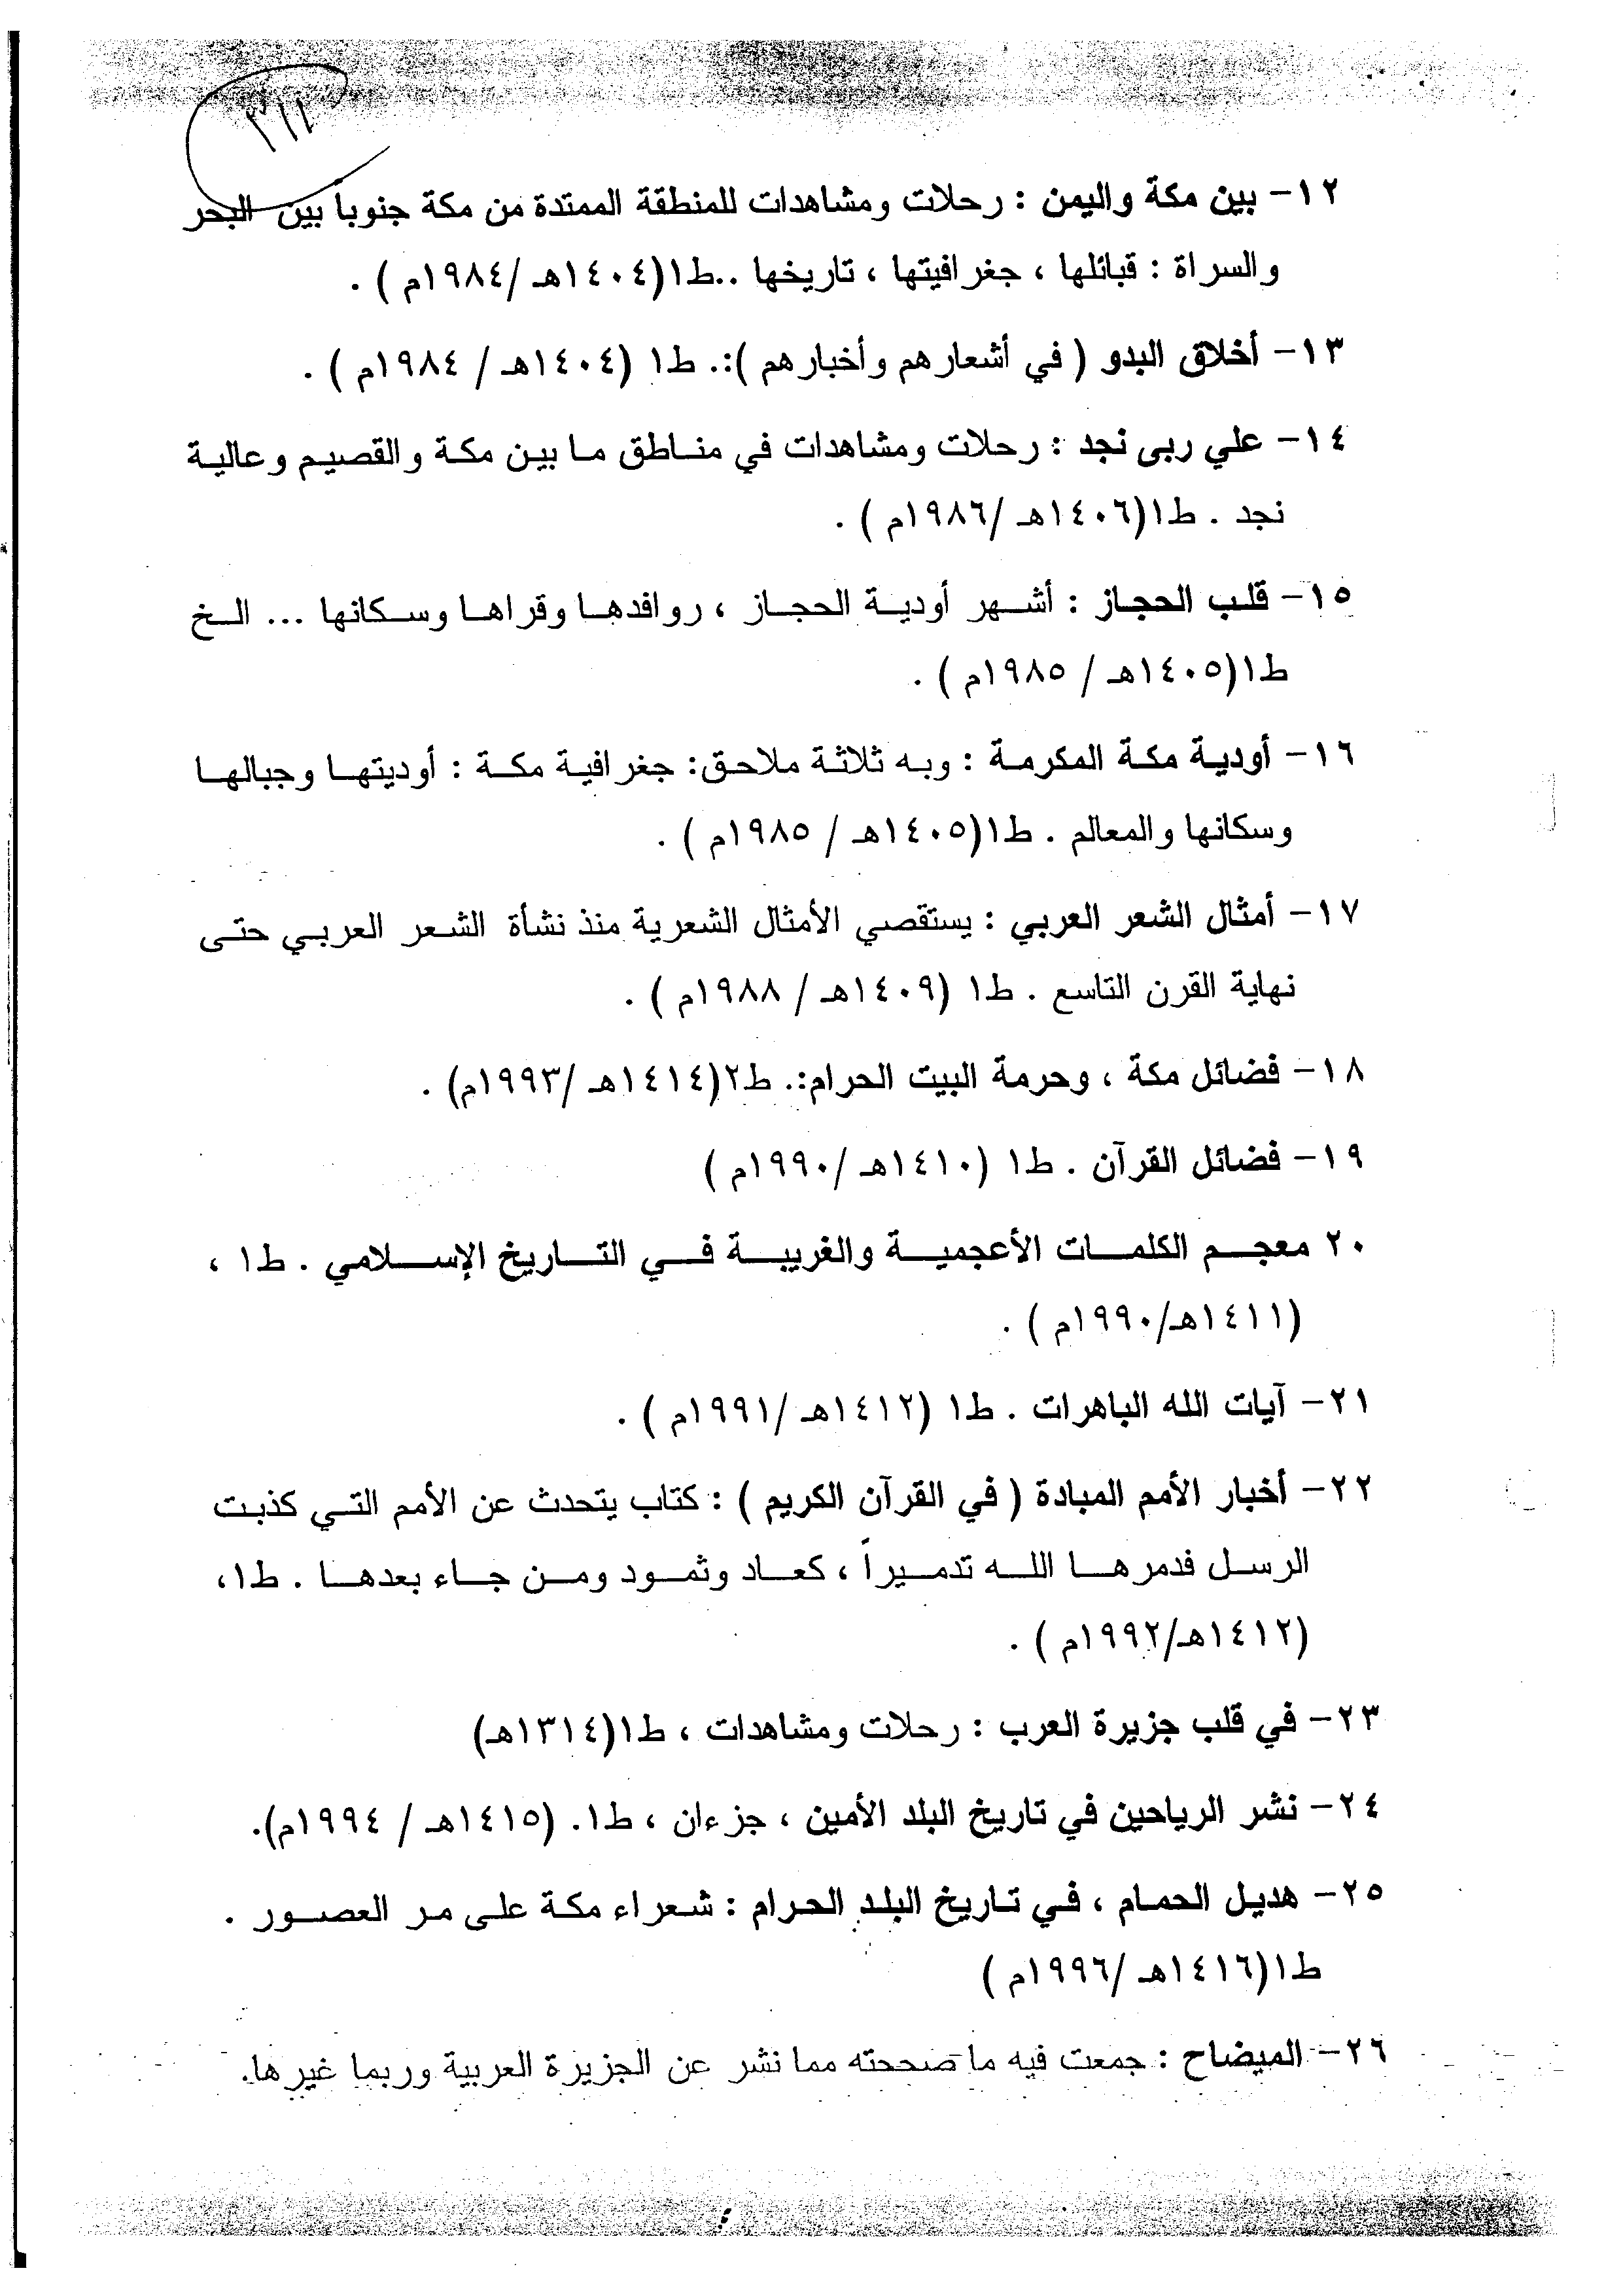 ١٢- بين مكة واليمن : رحلات ومشاهدات للمنطقة الممتدة من مكة جنوبا بين البحر
والسراة : قبائلها ، جغرافيتها ، تاريخها ..ط١(١٤٠٤هـ /١٩٨٤م ) .
١٣- أخلاق البدو ( في أشعارهم وأخبارهم ):. ط١ (١٤٠٤هـ / ١٩٨٤م ) .
١٤- علي ربى نجد : رحلات ومشاهدات في مناطق ما بين مكة والقصيم وعالية
نجد . ط١(١٤٠٦هـ /١٩٨٦م ) .
١٥- قلب الحجاز : أشهر أودية الحجاز ، روافدها وقراها وسكانها ... الخ
ط١(١٤٠٥هـ / ١٩٨٥م ) .
١٦- أودية مكة المكرمة : وبه ثلاثة ملاحق: جغرافية مكة : أوديتها وجبالها
وسكانها والمعالم . ط١(١٤٠٥هـ / ١٩٨٥م ) .
١٧- أمثال الشعر العربي : يستقصي الأمثال الشعرية منذ نشأة الشعر العربي حتى
نهاية القرن التاسع . ط١ (١٤٠٩هـ / ١٩٨٨م ) .
١٨- فضائل مكة ، وحرمة البيت الحرام:. ط٢(١٤١٤هـ /١٩٩٣م) .
١٩- فضائل القرآن . ط١ (١٤١٠هـ /١٩٩٠م )
٢٠ معجم الكلمات الأعجمية والغريبة في التاريخ الإسلامي . ط١ ،
(١٤١١هـ/١٩٩٠م ) .
٢١- آيات الله الباهرات . ط١ (١٤١٢هـ /١٩٩١م ) .
٢٢- أخبار الأمم المبادة ( في القرآن الكريم ) : كتاب يتحدث عن الأمم التي كذبت
الرسل فدمرها الله تدميراً ، كعاد وثمود ومن جاء بعدها . ط١،
(١٤١٢هـ/١٩٩٢م ) .
٢٣- في قلب جزيرة العرب : رحلات ومشاهدات ، ط١(١٣١٤هـ)
٢٤- نشر الرياحين في تاريخ البلد الأمين ، جزءان ، ط١. (١٤١٥هـ / ١٩٩٤م).
٢٥- هديل الحمام ، في تاريخ البلد الحرام : شعراء مكة على مر العصور .
ط١(١٤١٦هـ /١٩٩٦م )
٢٦- الميضاح : جمعت فيه ما صححته مما نشر عن الجزيرة العربية وربما غيرها.